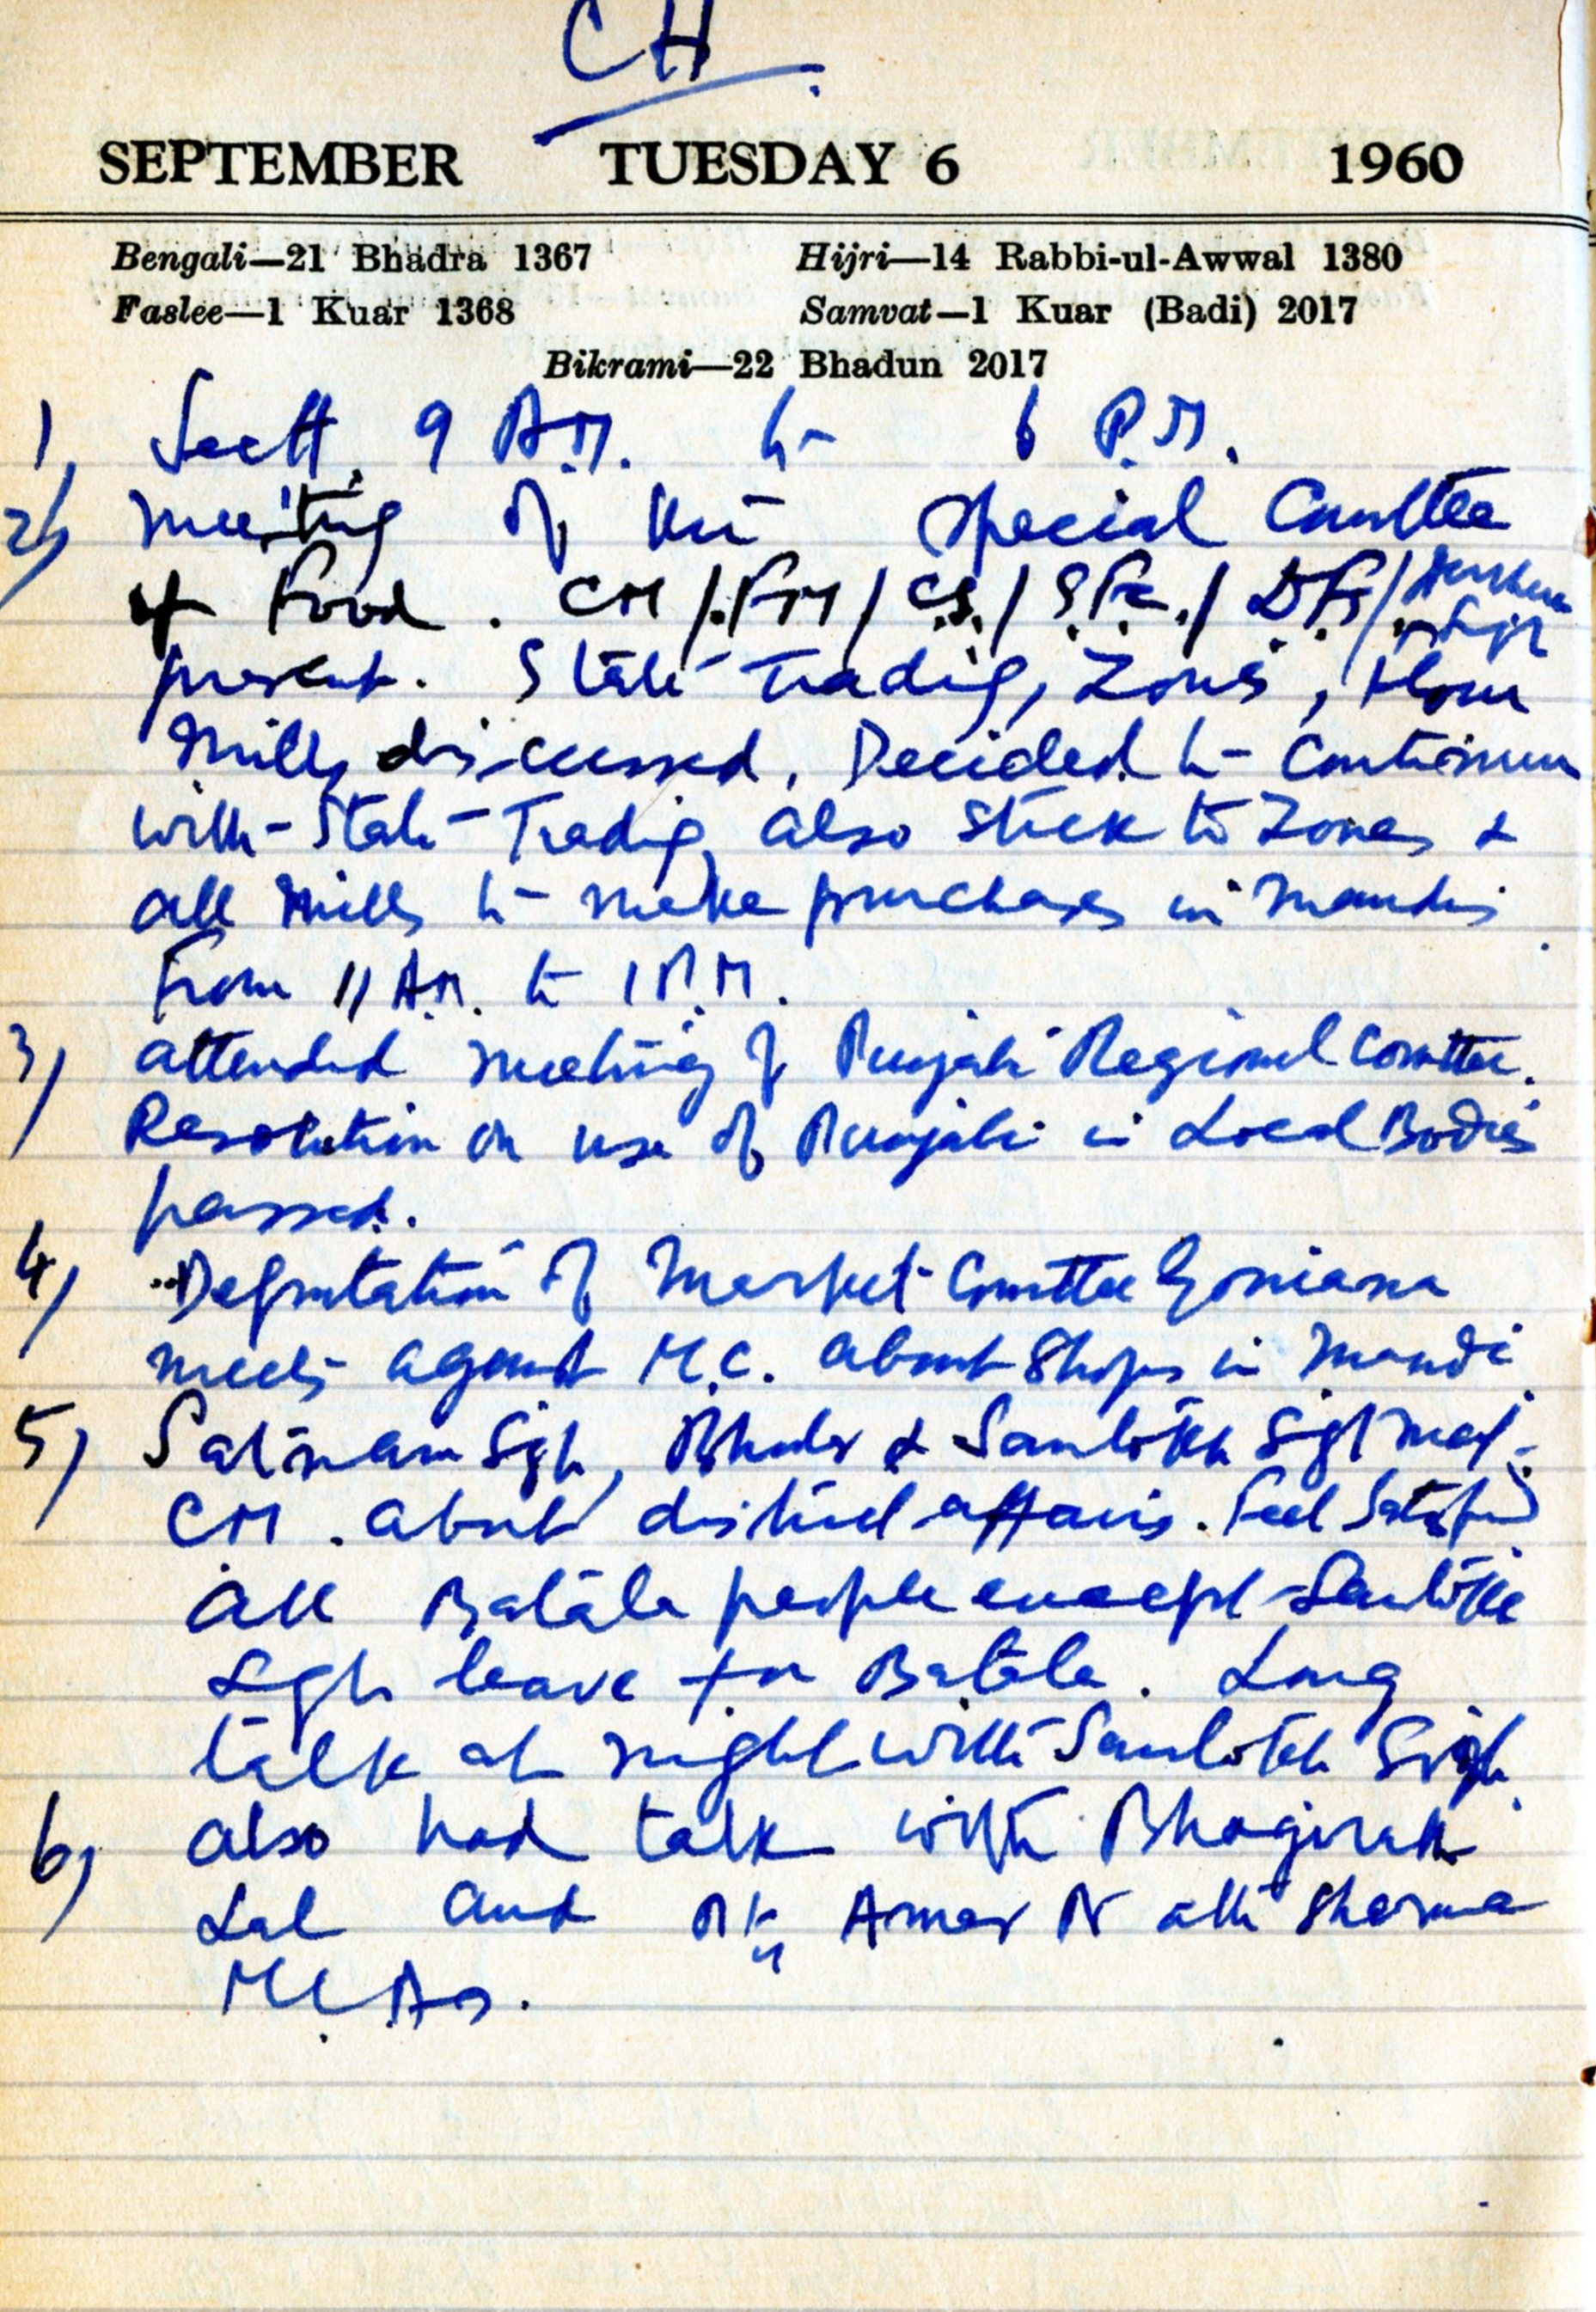 CH.
SEPTEMBER TUESDAY 6 1960
Bengali—21 Bhadra 1367 Hijri—14 Rabbi-ul-Awwal 1380
Faslee—1 Kuar 1368 Samvat—1 Kuar (Badi) 2017
Bikrami—22 Bhadun 2017
1) Sectt. 9 A.M. to 6 P.M.
2) Meeting of the special Committee
of Food. CM / FM / C.S. / S.F.C. / D.F.S /
present. State Trading, Zones, Flour
Mills discussed. Decided to continue
with State Trading, also stick to Zones &
all Mills to make purchases in Mandis
from 11 A.M. to 1 P.M.
3) attended meeting of Punjabi Regional Committee.
Resolution on use of Punjabi in Local Bodies
passed.
4) Deputation of Market Committee Goniana
meets against M.C. about Shops in Mandi
5) Satnam Sgh, & Santokh Sgh meet
CM. about district affairs. Feel Satisfied
All Batala people except Santokh
Sgh leave for Batala. Long
talk at night with Santokh Singh
6) also had talk with Bhagirath
Lal and Amar Nath Sharma
MLAs.